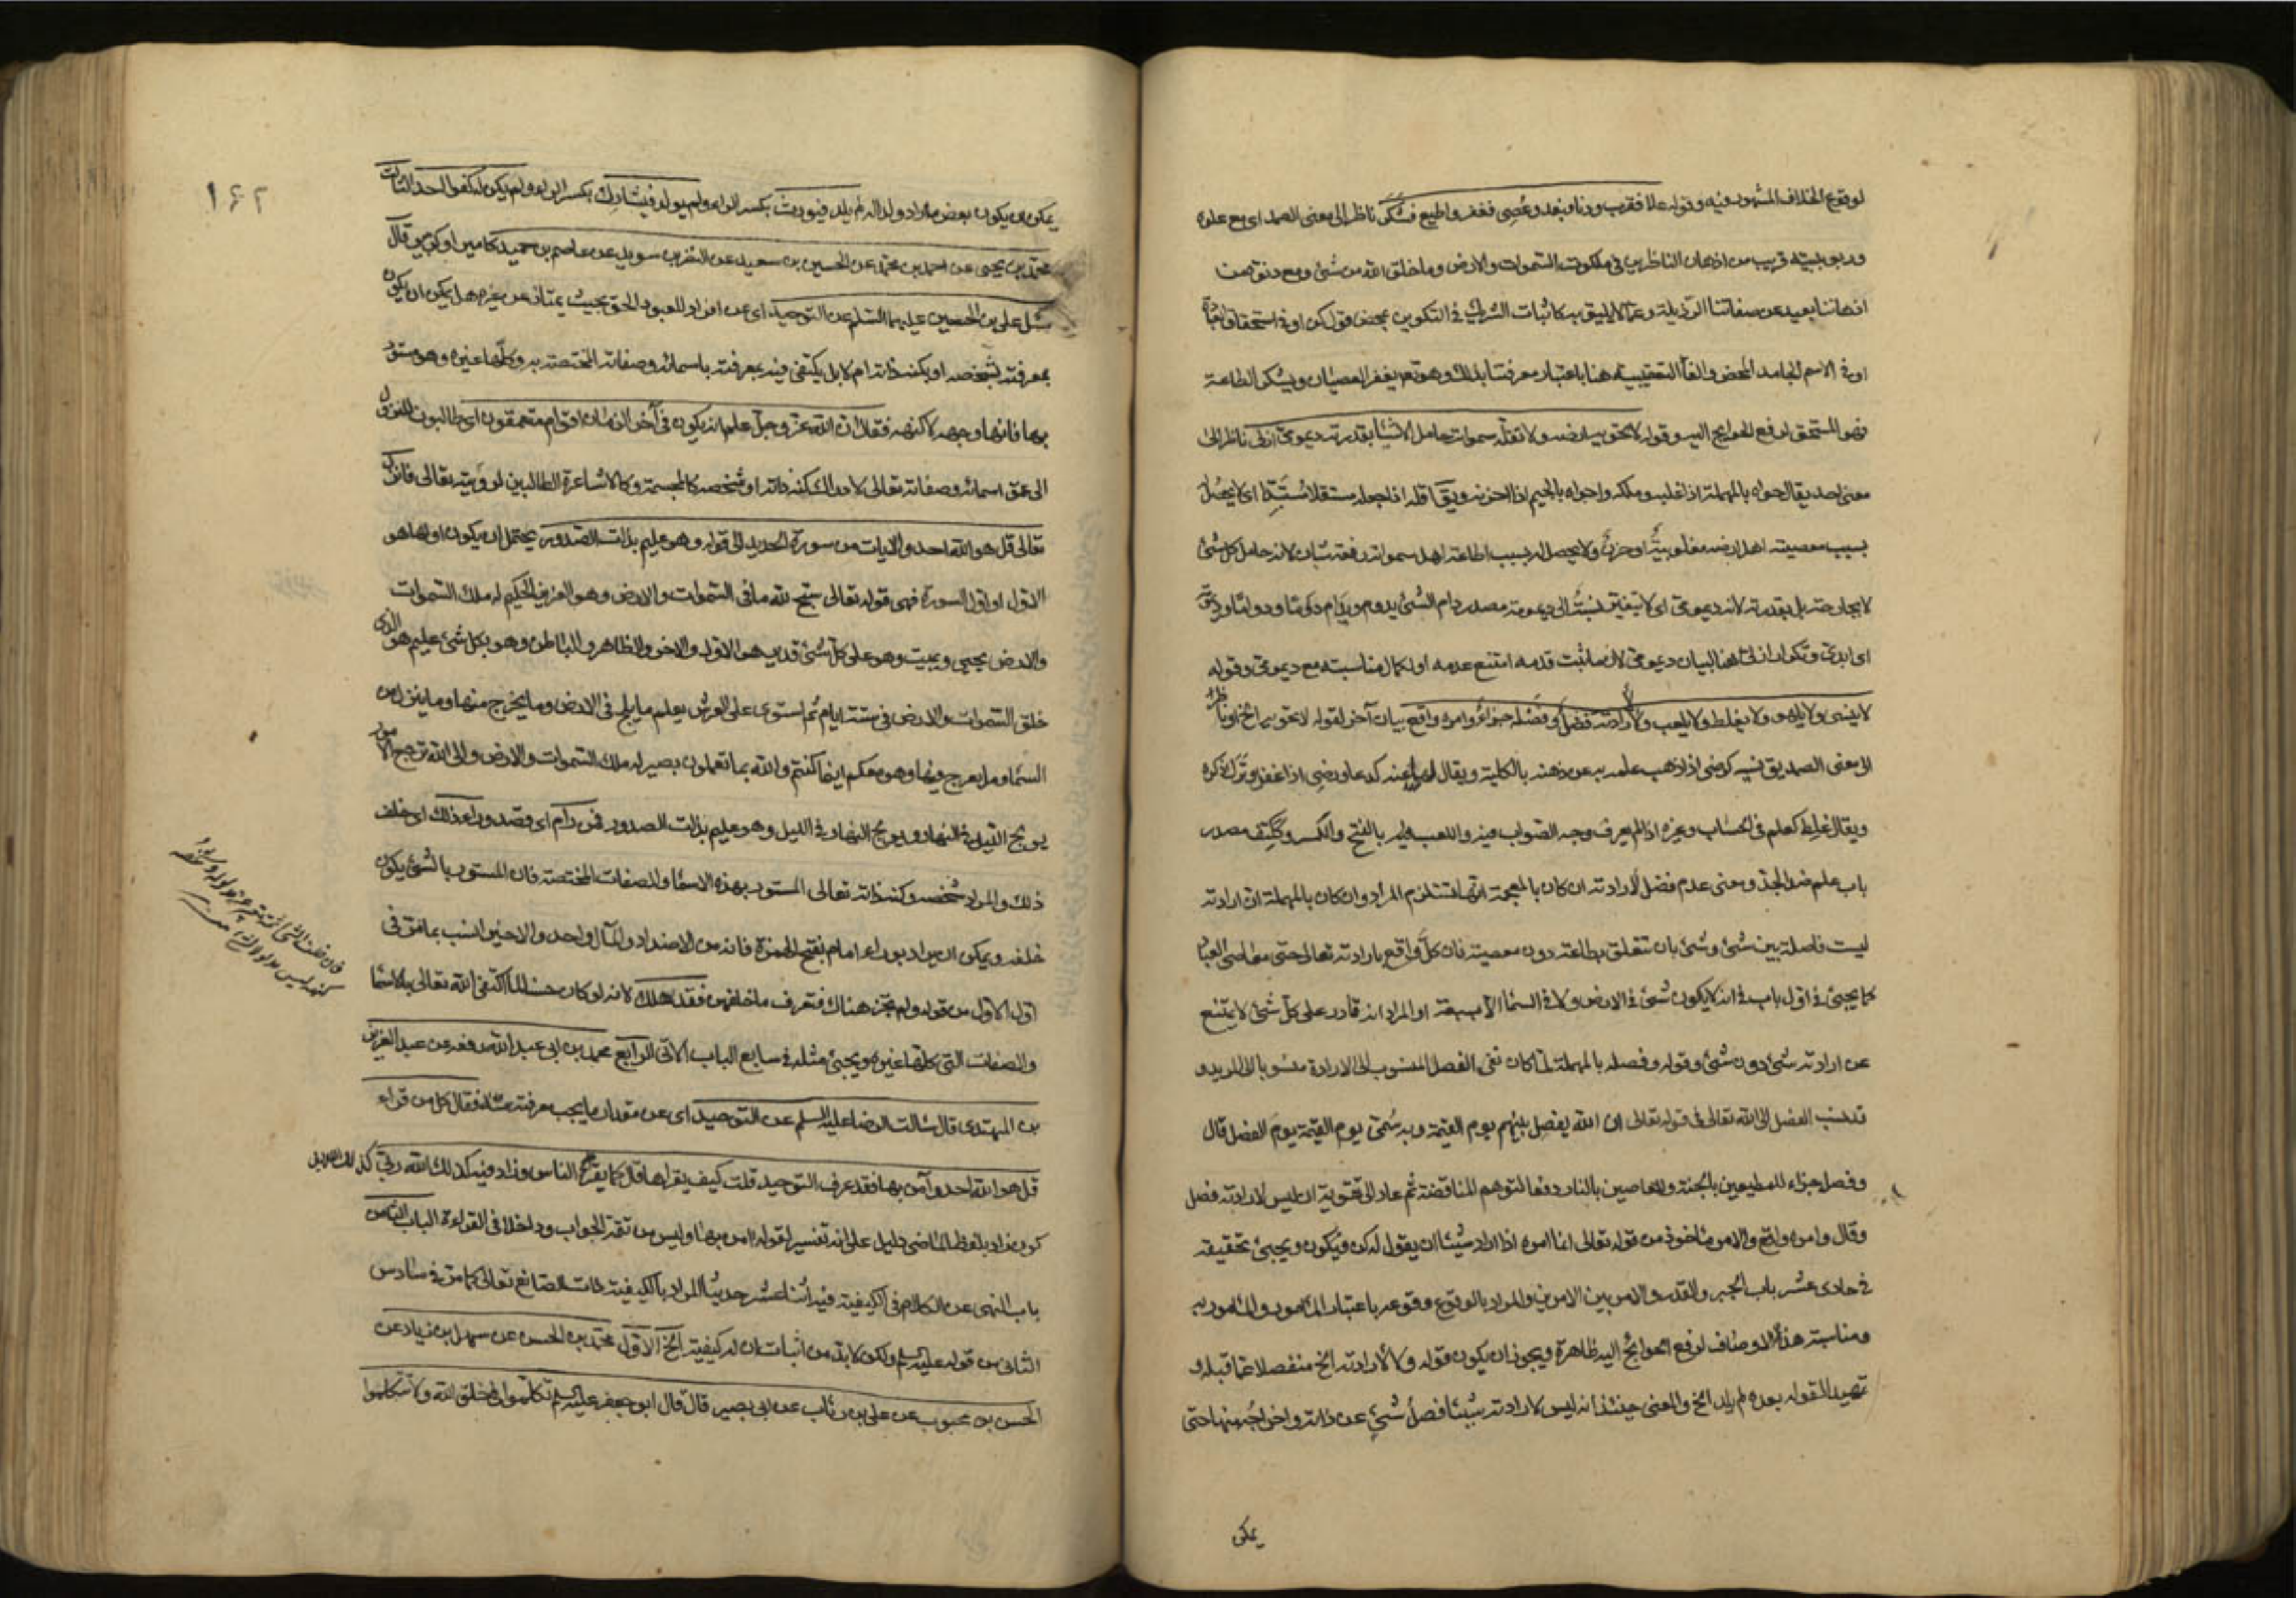 لوقوع الخلاف المشهود فيه وقوله علا فقرب ودنا فبعد وعُصِي فغفر واطيع فشكر ناظر الى معنى الصمد اى مع علوه
وربوبيته قريب من اذهان الناظرين في ملكوت السموات والارض وما خلق الله من شئ ومع دنوه من
اذهاننا بعيد عن صفاتنا الرذيلة وعما لا يليق به كاثبات الشريك في التكوين بمحض قول كن او في استحقاق العبادة
او في الاسم الجامد المحض والفا التعقيبية هنا باعتبار معرفتنا بذلك وهو تعالى يغفر العصيان ويشكر الطاعة
فهو المستحق لرفع الحوائج اليه وقوله لا تحويه ارضه ولا تقله سمواته حامل الاشيا بقدرته ديمومي ازلي ناظر الى
معنى احد يقال حواه بالمهملة اذا غلبه وملكه واحواه بالجيم اذا احزنه ويق اقله اذا جعله مستقلا اى لا يحصل
بسبب معصية اهل ارضه مغلوبية او حزن ولا يحصل له بسبب اطاعة اهل سمواته رفعة شان لانه حامل كل شئ
لا بجارحة بل بقدرته لانه ديمومي اى لا يتغير نسبة الى ديمومة مصدر دام الشئ يدوم ويدام دوما ودواما وديمومة
اى ابدي وتكرار ازلي هنا لبيان ديمومي لان ما ثبت قدمه امتنع عدمه او لكمال مناسبته مع ديمومي وقوله
لا ينسى ولا يلهو ولا يغلط ولا يلعب ولا لارادته فصل وفصله جزاء وامره واقع بيان آخر لقوله لا تحويه الخ او ناظر
الى معنى الصمد يق نسيه كرضى اذا ذهب علمه به عن ذهنه بالكلية ويقال لها عنه كدعا ورضى اذا غفل وترك ذكره
ويقال غلط كعلم في الحساب وغيره اذا لم يعرف وجه الصواب فيه واللعب بالفتح والكسر وككتف مصدر
باب علم ضد الجد ومعنى عدم فضل لارادته ان كان بالمعجمة انها تستلزم المراد وان كان بالمهملة ان ارادته
ليست فاصلة بين شئ وشئ بان تتعلق بطاعته دون معصية فان كل واقع بارادته تعالى حتى معاصى العباد
كما يجيئ في اول باب في انه لا يكون شئ في الارض ولا في السما الا بسبعة او المراد انه قادر على كل شئ لا يمتنع
عن ارادته شئ دون شئ وقوله وفصله بالمهملة لما كان نفى الفصل المنسوب الى الارادة منسوبا الى المريد و
قد نسب الفصل الى الله تعالى في قوله تعالى ان الله يفصل بينهم يوم القيمة وبه سمي يوم القيمة يوم الفصل قال
وفصله جزاء للمطيعين بالجنة وللعاصين بالنار دفعا لتوهم المناقضة ثم عاد الى تقوية ان ليس لارادته فصل
وقال وامره واقع والامر ماخوذ من قوله تعالى انما امره اذا اراد شيئا ان يقول له كن فيكون ويجيئ تحقيقه
في حادى عشر باب الجبر والقدر والامر بين الامرين والمراد بالوقوع وقوعه باعتبار المامور والمامور به
ومناسبة هذه الاوصاف لرفع الحوائج اليه ظاهرة ويجوز ان يكون قوله ولا لارادته الخ منفصلا عما قبله و
تمهيدا لقوله بعده لم يلد الخ والمعنى حينئذ انه ليس لارادته شيئا فصل شئ عن ذاته واخراجه منها حتى
يمكن
١٦٢
يمكن ان يكون بعض ما اراد ولدا له لم يلد فيورث بكسر الراء ولم يولد فيشارك بكسر الراء ولم يكن له كفوا احد الثالث
محمد بن يحيى عن احمد بن محمد عن الحسين بن سعيد عن النضر بن سويد عن عاصم بن حميد كامير او كزبير قال
سئل على بن الحسين عليهما السلم عن التوحيد اى عن افراد المعبود الحق بحيث يمتاز عن غيره هل يمكن ان يكون
بمعرفته بشخصه او بكنه ذاته ام لا بل يكتفى فيه بمعرفته باسمائه وصفاته المختصة به وكلها غيره وهو مستور
بها فانها وجهه لا كنهه فقال ان الله عز وجل علم انه يكون في آخر الزمان اقوام متعمقون اى طالبون للنزول
الى عمق اسمائه وصفاته تعالى لادراك كنه ذاته او شخصه كالمجسمة وكالاشاعرة الطالبين لرؤيته تعالى فانزل
تعالى قل هو الله احد والايات من سورة الحديد الى قوله وهو عليم بذات الصدور يحتمل ان يكون اولها هو
الاول او اول السورة فهى قوله تعالى سبح لله ما فى السموات والارض وهو العزيز الحكيم له ملك السموات
والارض يحيى ويميت وهو على كل شئ قدير هو الاول والاخر والظاهر والباطن وهو بكل شئ عليم هو الذى
خلق السموات والارض فى ستة ايام ثم استوى على العرش يعلم ما يلج فى الارض وما يخرج منها وما ينزل من
السما وما يعرج فيها وهو معكم اينما كنتم والله بما تعملون بصير له ملك السموات والارض والى الله ترجع الامور
يولج الليل فى النهار ويولج النهار فى الليل وهو عليم بذات الصدور فمن رام اى قصد وراء ذلك اى خلف
ذلك والمراد شخصه وكنه ذاته تعالى المستور بهذه الاسما والصفات المختصة فان المستور بالشئ يكون
خلفه ويمكن ان يراد بوراء امام بفتح الهمزة فانه من الاضداد والمآل واحد والاخير انسب بما مر فى
اول الاول من قوله ولم تجز هناك فتعرف ما خلفهن فقد هلك لانه لو كان حسنا لما اكتفى الله تعالى بالاسما
والصفات التى كلها غيره ويجيئ مثله فى سابع الباب الآتى الرابع محمد بن ابى عبد الله رفعه عن عبد العزيز
بن المهتدى قال سالت الرضا عليه السلم عن التوحيد اى عن مقدار ما يجب معرفته منه فقال كل من قراء
قل هو الله احد وآمن بها فقد عرف التوحيد قلت كيف يقراها قال كما يقرأ الناس وزاد فيه كذلك الله ربي كذلك الله ربي
كون زاد بلفظ الماضى دليل على انه تفسير لقوله آمن بها وليس من تتمة الجواب وداخلا فى القراءة الباب الثامن
باب النهى عن الكلام فى الكيفية فيه اثنا عشر حديثا المراد بالكيفية ذات الصانع تعالى كما مر فى سادس
الثانى من قوله عليه السلم ولكن لابد من اثبات ان له كيفية الخ الاول محمد بن الحسن عن سهل بن زياد عن
الحسن بن محبوب عن على بن رئاب عن ابى بصير قال قال ابو جعفر عليه السلم تكلموا فى خلق الله ولا تتكلموا